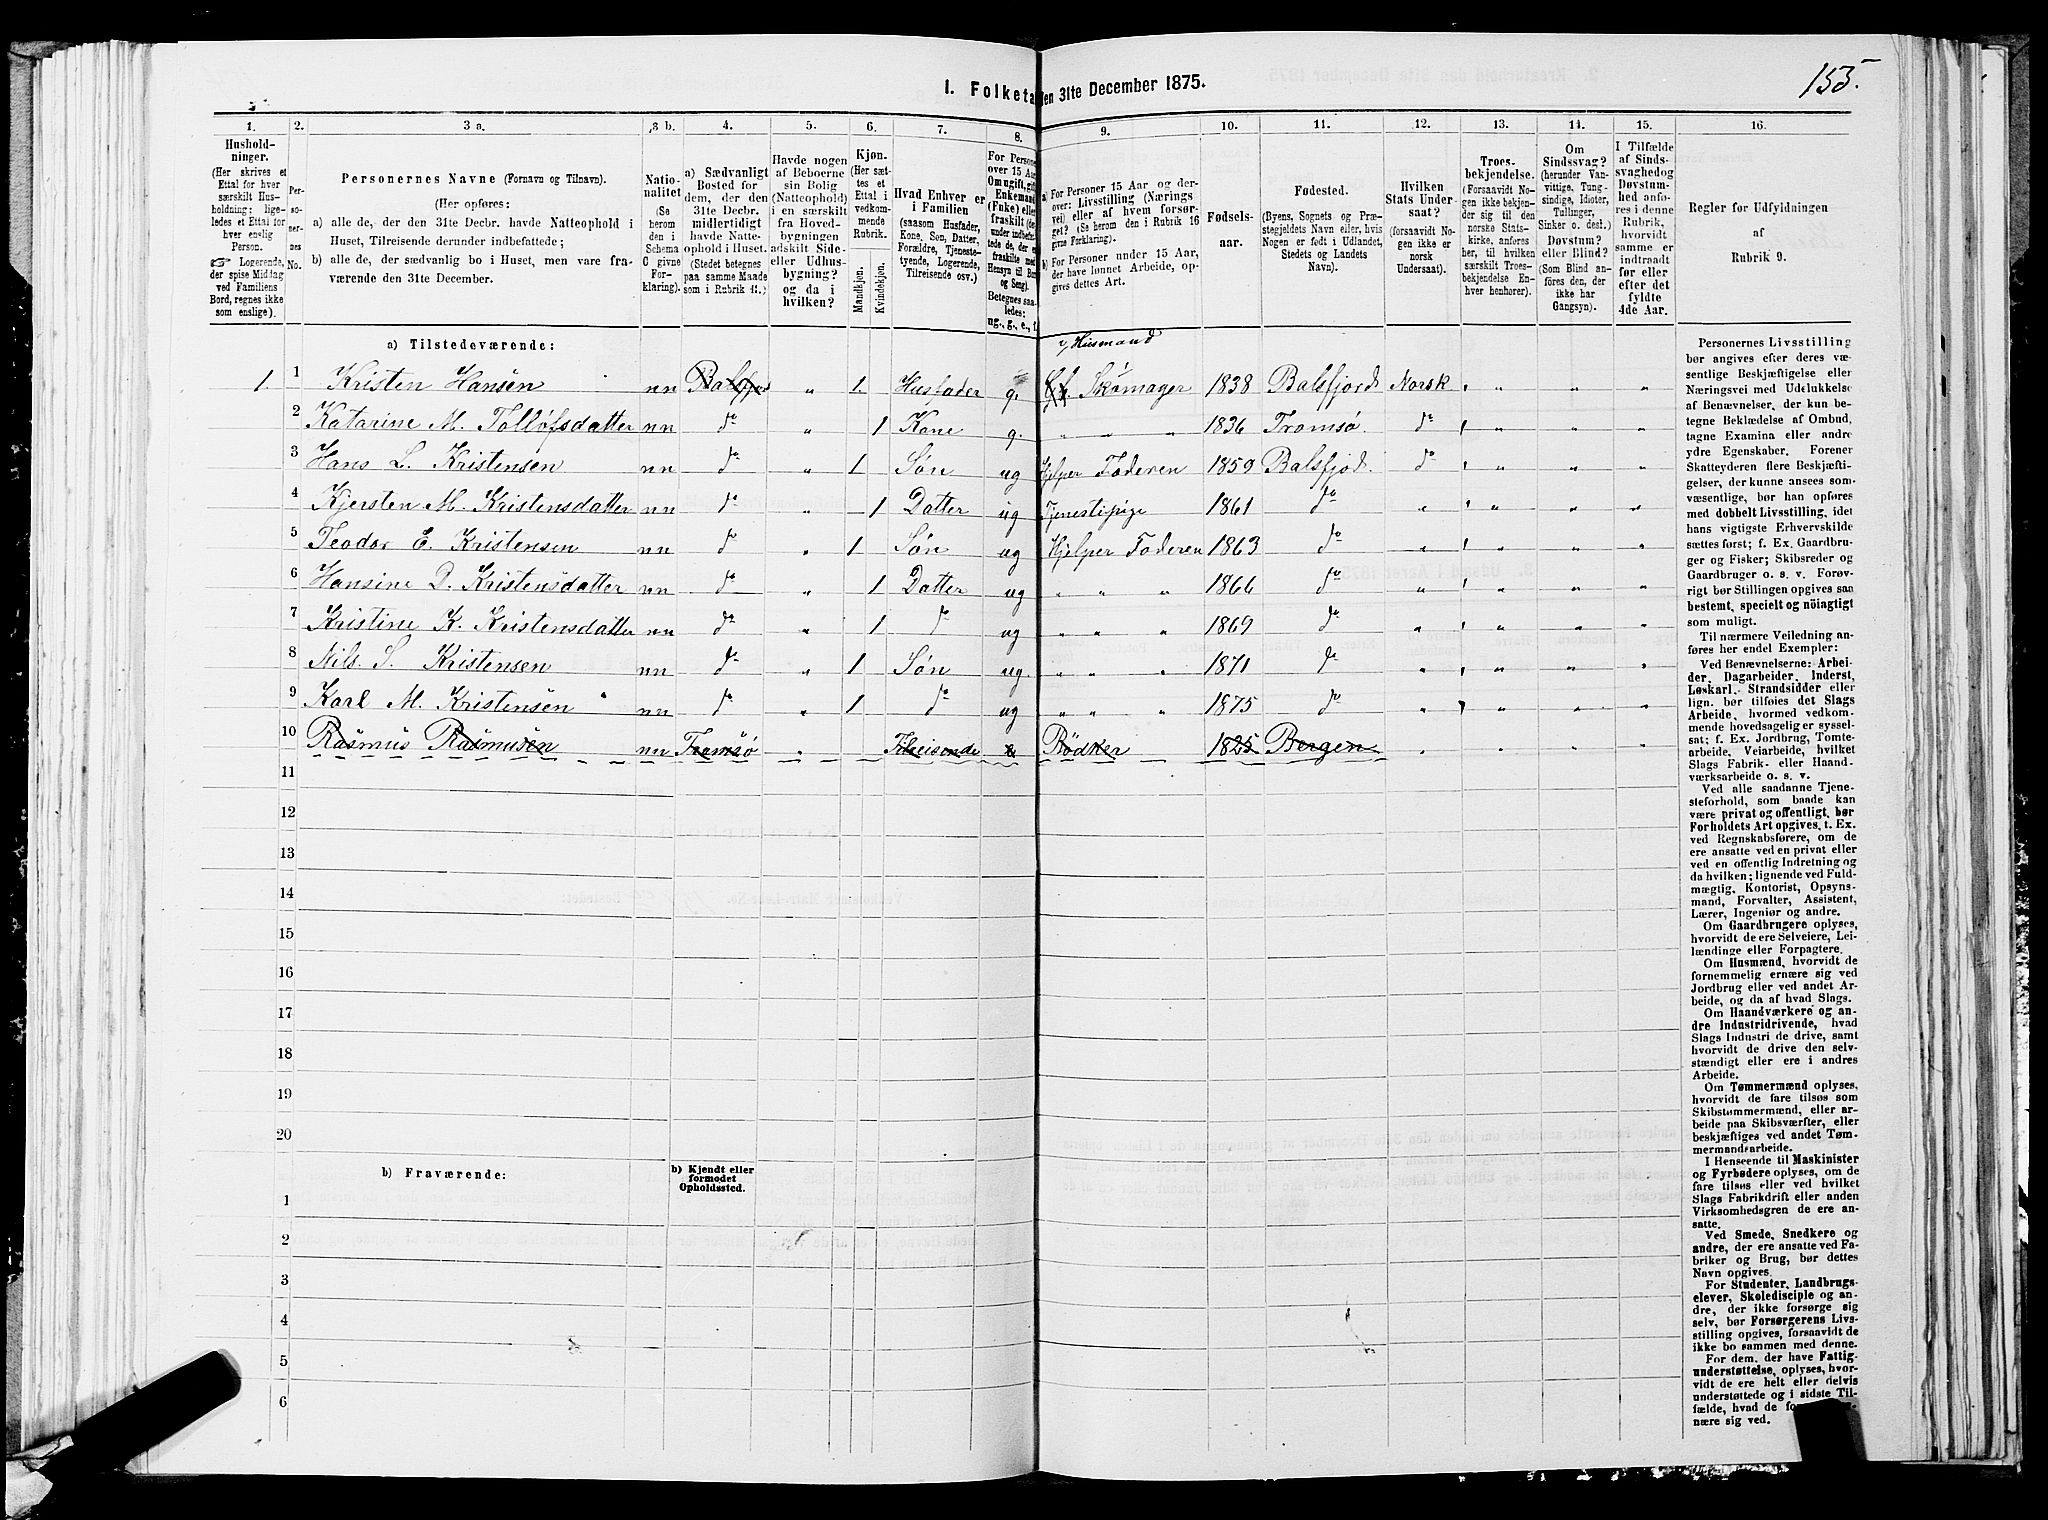 155.
1. Folketæ
den 31te December 1875.
1. 2. 3 a. 3 b. 4. 5. 6. 7. 8. 9. 10. 11. 12. 13. 14. 15. 16.
Hushold-
ninger.
(Her skrives et
Ettal for hver
særskilt Hus-
holdning; lige-
ledes et Ettal for
hver enslig
Person.
☞ Logerende,
der spise Middag
ved Familiens
Bord, regnes ikke
som enslige).
Per-
so-
ner-
nes
No.
Personernes Navne (Fornavn og Tilnavn).
(Her opføres:
a) alle de, der den 31te Decbr. havde Natteophold i
Huset, Tilreisende derunder indbefattede;
b) alle de, der sædvanlig bo i Huset, men vare fra-
værende den 31te December.
Natio-
nalitet
(Se
herom
den i
Schema
C givne
For-
klaring).
a) Sædvanligt
Bosted for
dem, der den
31te Decbr.
midlertidigt
havde Natte-
ophold i Huset.
(Stedet betegnes
paa samme Maade
som i Rubrik 11.)
Havde nogen
af Beboerne
sin Bolig
(Natteophold)
i en særskilt
fra Hoved-
bygningen
adskilt Side-
eller Udhus-
bygning?
og da i
hvilken?
Kjøn.
(Her sæt-
tes et
Ettal i
vedkom-
mende
Rubrik.
Mandkjøn.
Kvindekjøn.
Hvad Enhver er
i Familien
(saasom Husfader,
Kone, Søn, Datter,
Forældre, Tjeneste-
tyende, Logerende,
Tilreisende osv.)
For Persone
over 15 Aar
Om ugift, gift
Enkemand
(Enke) eller
fraskilt
Betegnes saa-
ledes:
ug., g., e., f.
a) For Personer 15 Aar og der-
over: Livsstilling (Nærings
vei) eller af hvem forsør-
get? (Se herom den i Rubrik 16
givne Forklaring).
b) For Personer under 15 Aar,
der have lønnet Arbeide, op-
gives dettes Art.
Fødsels-
aar.
Fødested.
(Byens, Sognets og Præ-
stegjeldets Navn eller, hvis
Nogen er født i Udlandet,
Stedets og Landets
Navn).
Hvilken
Stats Under-
saat?
(forsaavidt No-
gen ikke er
norsk
Undersaat).
Troes-
bekjendelse.
(Forsaavidt No-
gen ikke bekjen-
der sig til den
norske Stats-
kirke, anføres
her, til hvilken
særskilt Troes-
bekjendelse En-
hver henhører).
Om
Sindssvag?
(herunder Van-
vittige, Tung-
sindige, Idioter,
Tullinger,
Sinker o. desl.)
Døvstum?
eller Blind?
(Som Blind an-
føres den, der
ikke har
Gangsyn).
I Tilfælde
af Sinds-
svaghed og
Døvstum-
hed anfø-
res i denne
Rubrik,
hvorvidt
samme er
indtraadt
før eller
efter det
fyldte
4de Aar.
Regler for Udfyldningen
af
Rubrik 9.
a) Tilstedeværende:
Husmand
1. 1 Kristen Hansen nn Balsfjord „ 1. Husfader g. Skømager 1838 Balsfjord Norsk
2 Katarine M. Tollofsdatter nn do „ 1 Kone g. „ „ „ 1836 Tromsø. do
3 Hans L. Kristensen nn do „ 1 Søn ug Hjelper Faderen 1859 Balsfjod. do
4 Kjersten M. Kristensdatter nn do „ 1 Datter ug Tjenestepige 1861 do „
5 Teodor E. Kristensen nn do „ 1 Søn ug Hjelper Faderen 1863 do „
6 Hansine D. Kristensdatter nn do „ 1 Datter ug „ „ „ 1866 do „
7 Kristine K. Kristensdatter nn do „ 1 do ug „ „ „ 1869 do „
8 Nils S. Kristensen nn do „ 1 Søn ug. „ „ „ 1871 do „
9 Karl M. Kristensen nn do „ 1 do ug „ „ „ 1875 do „
10 Rasmus Rasmusen nn Tromsø „ Tilreisende Rödker 1825 Bergen „
11
12
13
14
15
16
17
18
19
20
b) Fraværende:
b) Kjendt eller
formodet
Opholdssted.
1
2
3
4
5
6
Personernes Livsstilling
bør angives efter deres væ-
sentlige Beskjæftigelse eller
Næringsvei med Udelukkelse
af Benævnelser, der kun be-
tegne Beklædelse af Ombud,
tagne Examina eller andre
ydre Egenskaber. Forener
Skatteyderen flere Beskjæfti-
gelser, der kunne ansees som
væsentlige, bør han opføres
med dobbelt Livsstilling, idet
hans vigtigste Erhvervskilde
sættes først; f. Ex. Gaardbru-
ger og Fisker; Skibsreder og
Gaardbruger o. s. v. Forøv-
rigt bør Stillingen opgives saa
bestemt, specielt og nöiagtigt
som muligt.
Til nærmere Veiledning an-
føres her endel Exempler:
Ved Benævnelserne: Arbei-
der, Dagarbeider, Inderst,
Løskarl, Strandsidder eller
lign. bør tilføies det Slags
Arbeide, hvormed vedkom-
mende hovedsagelig er syssel-
sat; f. Ex. Jordbrug, Tomte-
arbeide, Veiarbeide, hvilket
Slags Fabrik- eller Haand-
værksarbeide o. s. v.
Ved alle saadanne Tjene-
steforhold, som baade kan
være privat og offentligt, bør
Forholdets Art opgives, t. Ex.
ved Regnskabsførere, om de
ere ansatte ved en privat eller
ved en offentlig Indretning og
da hvilken; lignende ved Fuld-
mægtig, Kontorist, Opsyns-
mand, Forvalter, Assistent,
Lærer, Ingeniør og andre.
Om Gaardbrugere oplyses,
hvorvidt de ere Selveiere, Lei-
lændinge eller Forpagtere.
Om Husmænd, hvorvidt de
fornemmelig ernære sig ved
Jordbrug eller ved andet Ar-
beide, og da af hvad Slags.
Om Haandværkere og an-
dre Industridrivende, hvad
Slags Industri de drive, samt
hvorvidt de drive den selv-
stændigt eller ere i andres
Arbeide.
Om Tømmermænd oplyses,
hvorvidt de fare tilsøs som
Skibstømmermænd, eller ar-
beide paa Skibsværfter, eller
beskjæftiges ved andet Tøm-
mermandsarbeide.
I Henseende til Maskinister
og Fyrbødere oplyses, om de
fare tilsøs eller ved hvilket
Slags Fabrikdrift eller anden
Virksomhedsgren de ere an-
satte.
Ved Smede, Snedkere og
andre, der ere ansatte ved Fa-
briker og Brug, bør dettes
Navn opgives.
For Studenter, Landbrugs-
elever, Skoledisciple og an-
dre, der ikke forsørge sig
selv, bør Forsørgerens Livs-
stilling opgives, forsaavidt de
ikke bo sammen med denne.
For dem, der have Fattig-
understøttelse, oplyses, hvor-
vidt de ere helt eller delvis
understøttede og i sidste Til-
fælde, hvad de
nære sig ved.